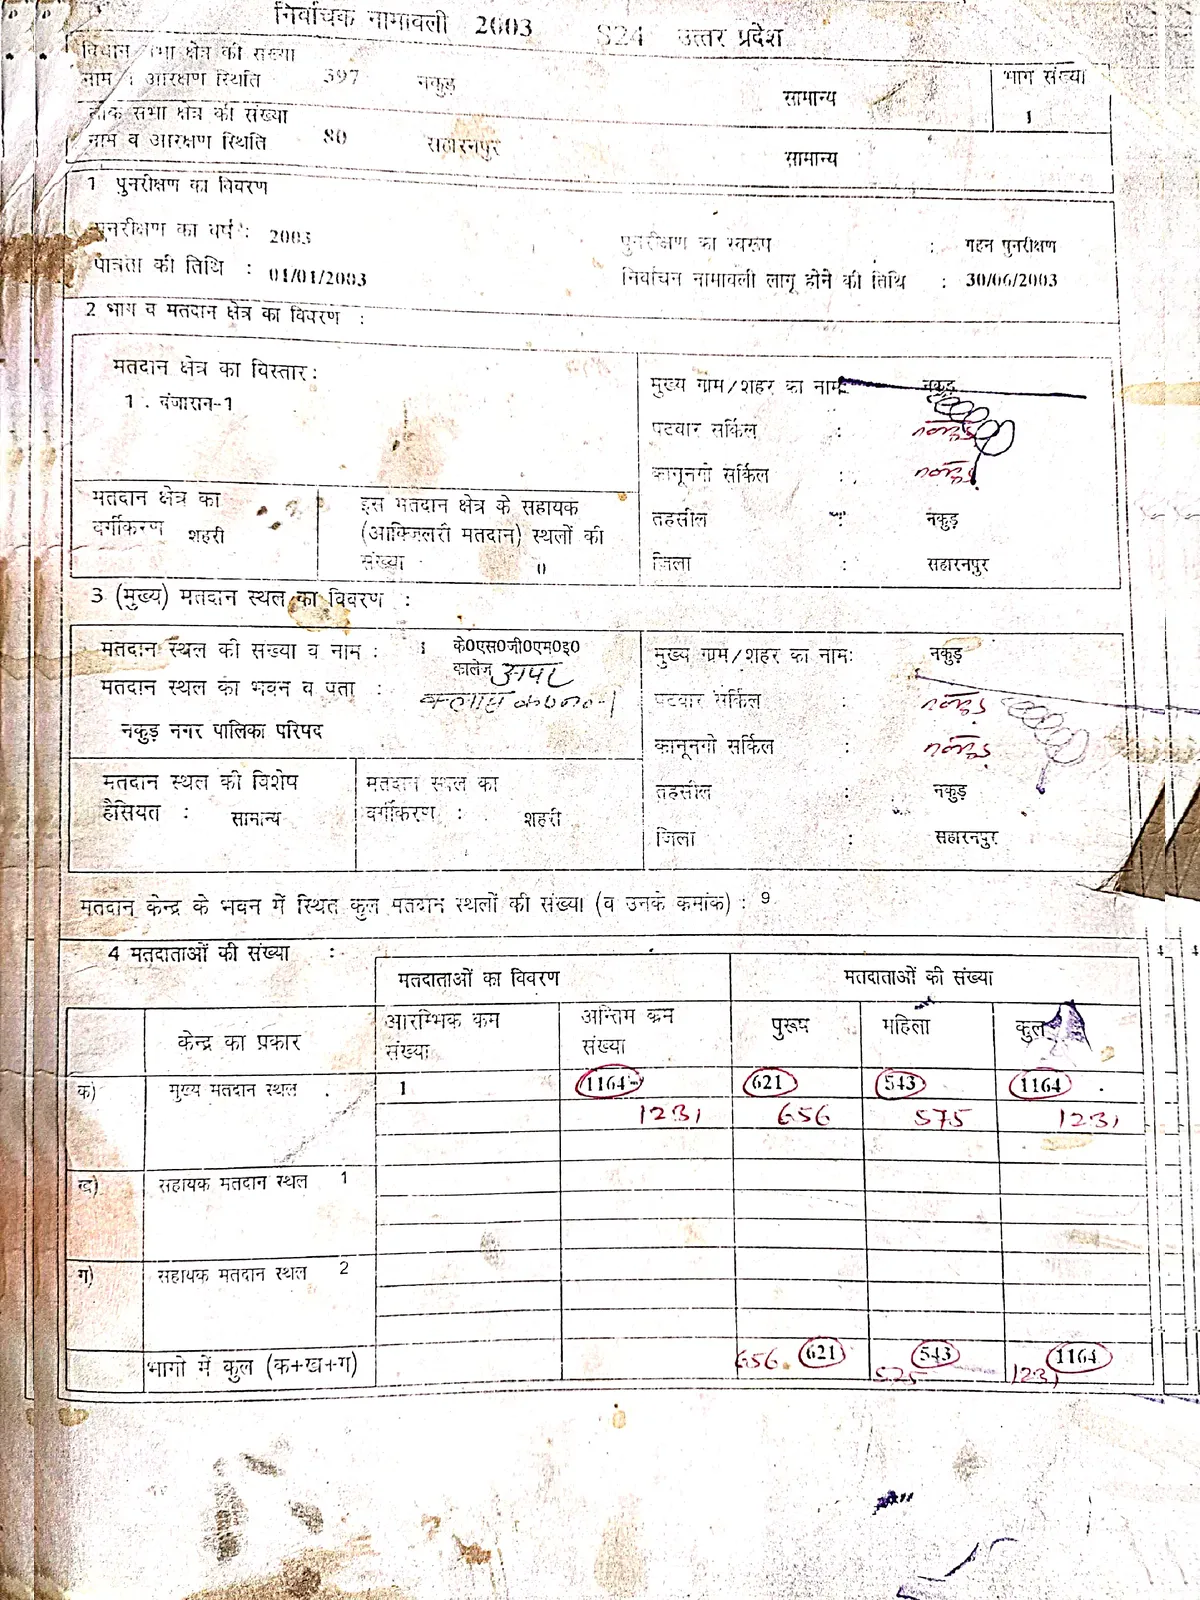 निर्वाचक नामावली 2003 S24 उत्तर प्रदेश
विधान सभा क्षेत्र की संख्या
नाम : आरक्षण स्थिति 397 नकुड़ सामान्य भाग संख्या
1
लोक सभा क्षेत्र की संख्या
नाम व आरक्षण स्थिति 80 सहारनपुर सामान्य
1 पुनरीक्षण का विवरण
पुनरीक्षण का वर्ष : 2003 पुनरीक्षण का स्वरूप : गहन पुनरीक्षण
पात्रता की तिथि : 01/01/2003 निर्वाचन नामावली लागू होने की तिथि : 30/06/2003
2 भाग व मतदान क्षेत्र का विवरण :
मतदान क्षेत्र का विस्तार :
1 . बंजारान-1
मुख्य ग्राम/शहर का नाम: नकुड़
पटवार सर्किल : नकुड़
कानूनगो सर्किल : नकुड़
तहसील : नकुड़
जिला : सहारनपुर
मतदान क्षेत्र का
वर्गीकरण शहरी
इस मतदान क्षेत्र के सहायक
(आक्जिलरी मतदान) स्थलों की
संख्या 0
3 (मुख्य) मतदान स्थल का विवरण :
मतदान स्थल की संख्या व नाम : 1 के0एस0जी0एम0इ0
कालेज अपर
मतदान स्थल का भवन व पता : क्लास क0न0-1
नकुड़ नगर पालिका परिषद
मुख्य ग्राम/शहर का नाम: नकुड़
पटवार सर्किल : नकुड़
कानूनगो सर्किल : नकुड़
तहसील : नकुड़
जिला : सहारनपुर
मतदान स्थल की विशेष
हैसियत : सामान्य
मतदान स्थल का
वर्गीकरण : शहरी
मतदान केन्द्र के भवन में स्थित कुल मतदान स्थलों की संख्या (व उनके कमांक) : 9
4 मतदाताओं की संख्या :
मतदाताओं का विवरण मतदाताओं की संख्या
केन्द्र का प्रकार आरम्भिक कम संख्या अन्तिम कम संख्या पुरूष महिला कुल
क) मुख्य मतदान स्थल 1 1164 621 543 1164
1231 656 575 1231
ख) सहायक मतदान स्थल 1
ग) सहायक मतदान स्थल 2
भागो में कुल (क+ख+ग) 656 621 543 1164
575 1231